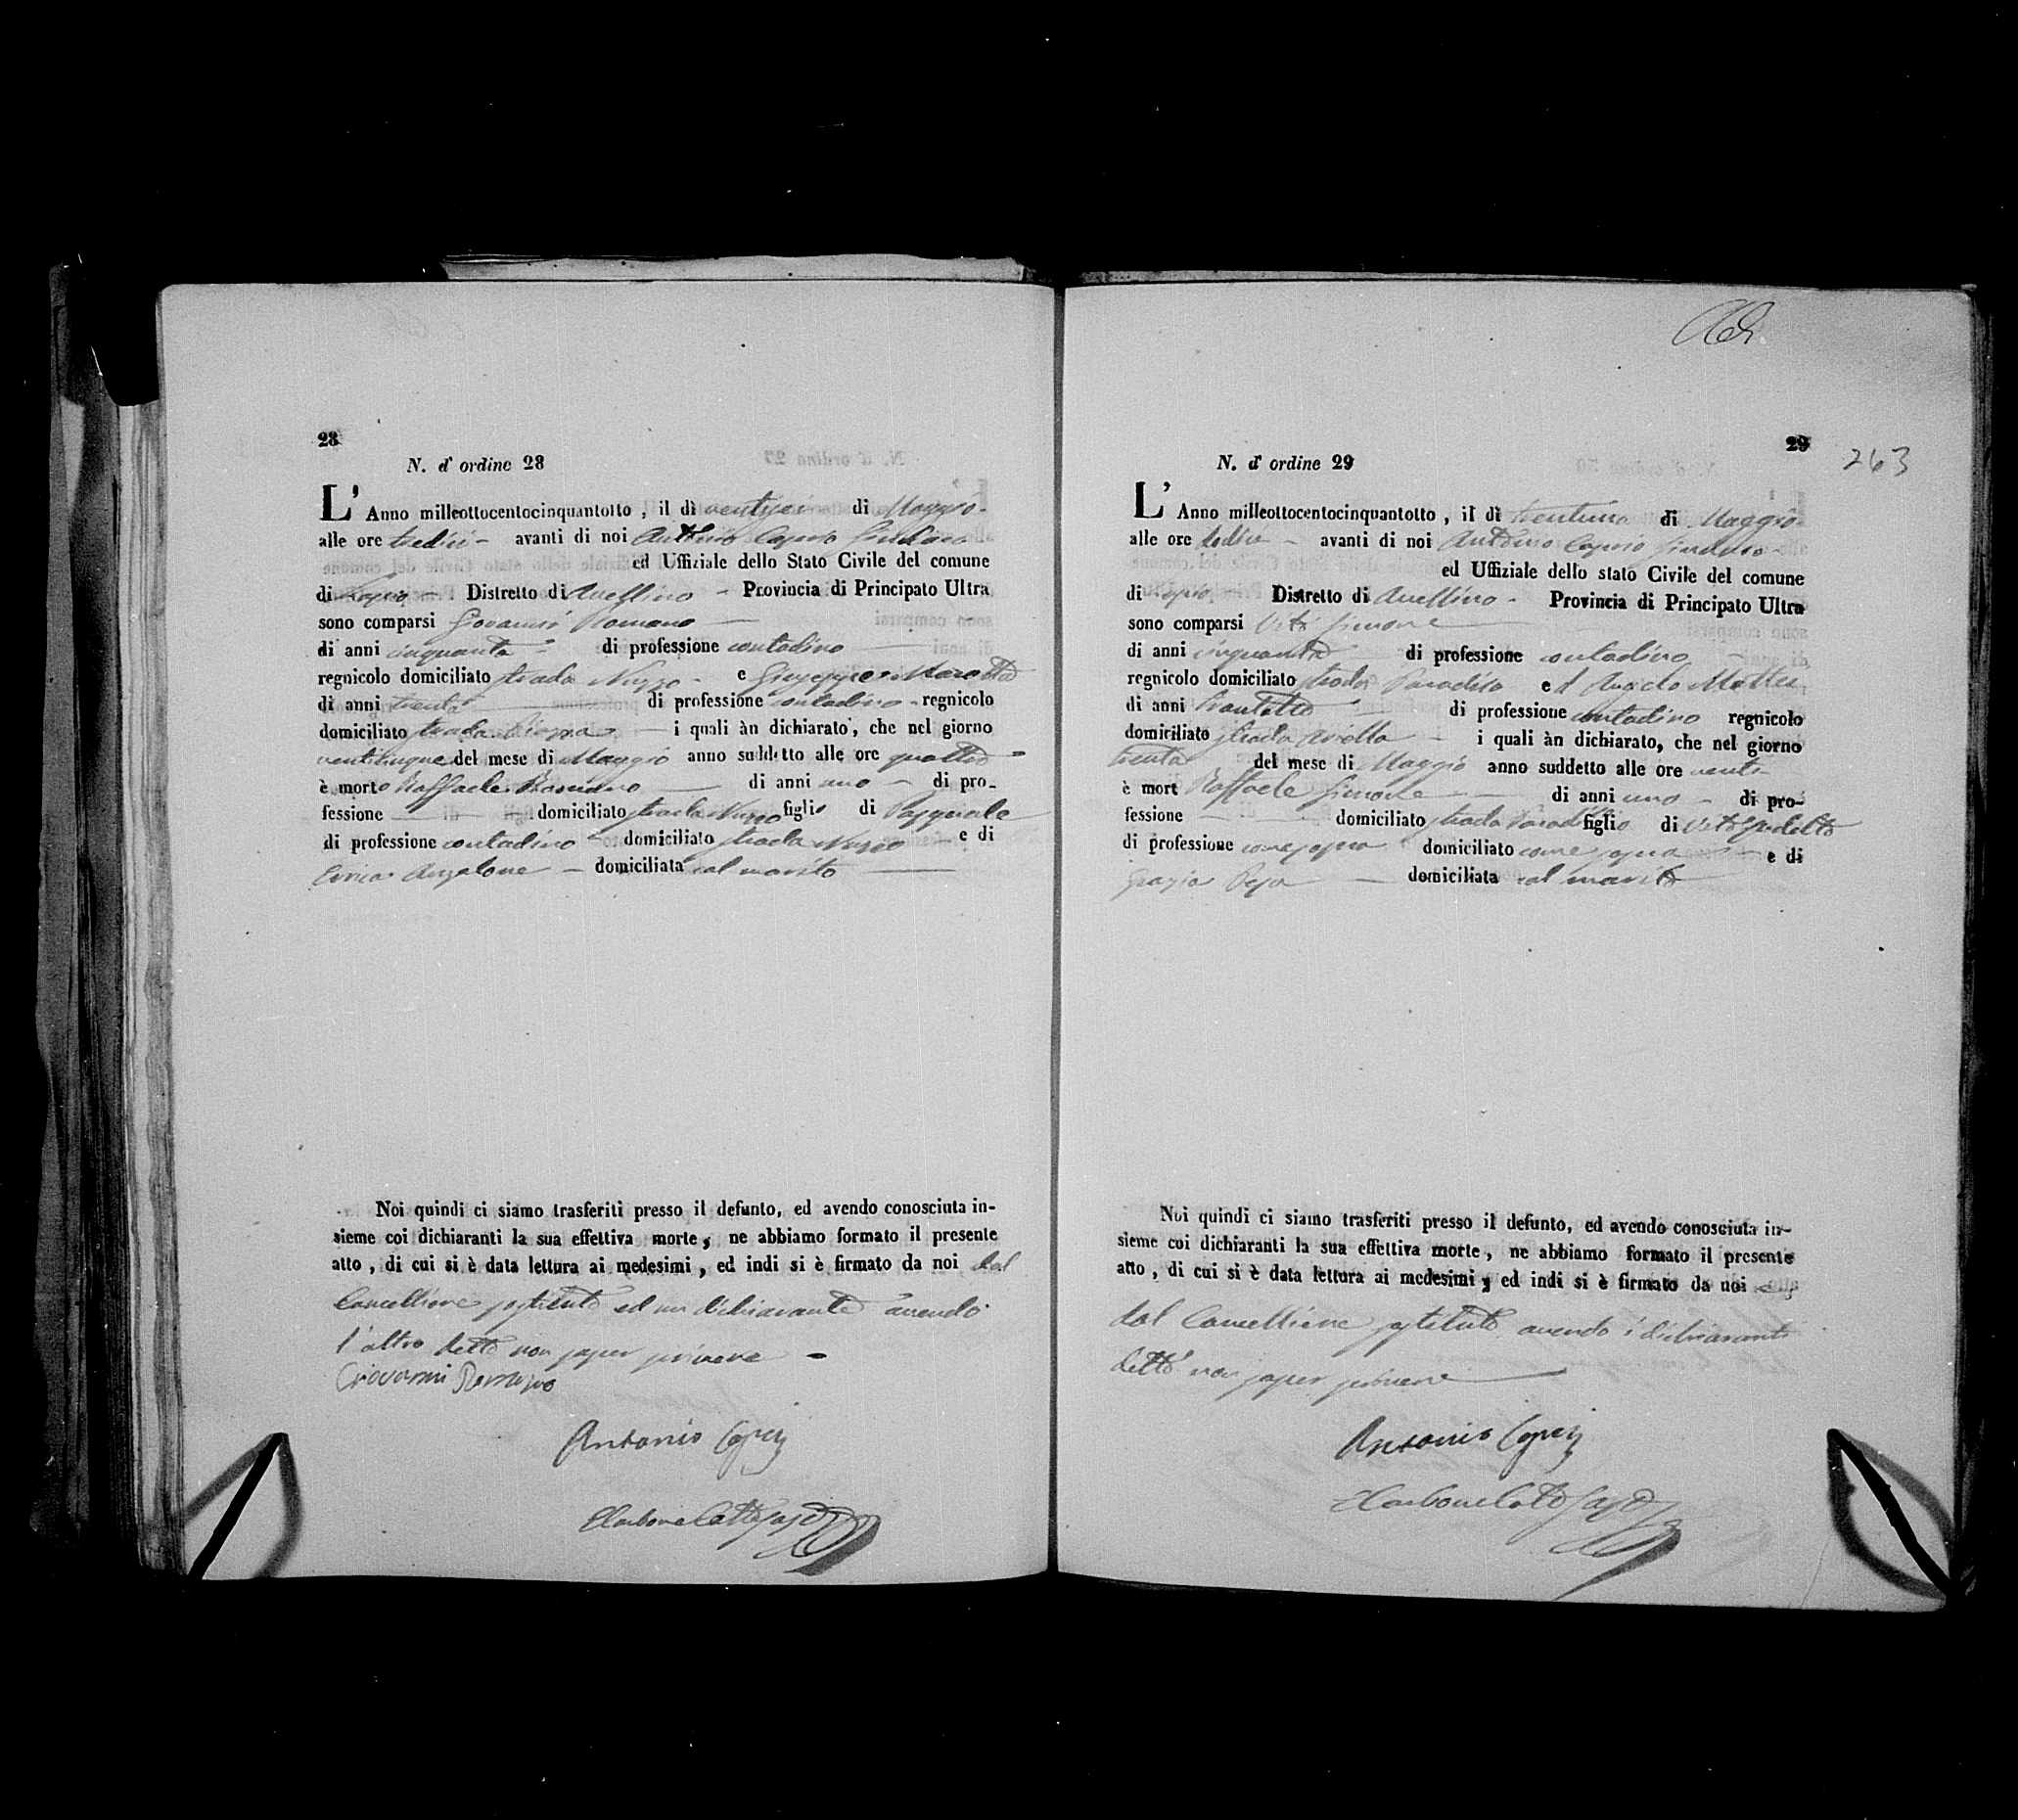 28
N. d' ordine 28
L' Anno milleottocentocinquantotto , il dì ventisei di Maggio
alle ore tredici avanti di noi Antonio Caprio Sindaco
ed Uffiziale dello Stato Civile del comune
di Distretto di Avellino Provincia di Principato Ultra
sono comparsi Giovanni Romano
di anni cinquanta di professione contadino
regnicolo domiciliato strada Nuzzo e Giuseppe Marotta
di anni trenta di professione contadino regnicolo
domiciliato strada i quali àn dichiarato , che nel giorno
venticinque del mese di Maggio anno suddetto alle ore quattro
è morto Raffaele Romano di anni uno di pro-
fessione domiciliato strada Nuzzo figlio di Pasquale
di professione contadino domiciliato strada Nuzzo e di
Anzalone domiciliata col marito
Noi quindi ci siamo trasferiti presso il defunto, ed avendo conosciuta in-
sieme coi dichiaranti la sua effettiva morte, ne abbiamo formato il presente
atto , di cui si è data lettura ai medesimi , ed indi si è firmato da noi dal
Cancelliere sostituto ed un dichiarante avendo
l'altro detto non saper scrivere
Giovanni Romano
Antonio
263
29
N. d' ordine 29
L' Anno milleottocentocinquantotto , il dì trentuno di Maggio
alle ore avanti di noi Antonio Caprio Sindaco
ed Uffiziale dello stato Civile del comune
di Distretto di Avellino Provincia di Principato Ultra
sono comparsi Vito Simone
di anni cinquanta di professione contadino
regnicolo domiciliato strada Paradiso e
di anni di professione contadino regnicolo
domiciliato strada i quali àn dichiarato, che nel giorno
trenta del mese di Maggio anno suddetto alle ore venti
è mort Raffaele Simone di anni uno di pro-
fessione domiciliato strada Paradiso figlio di Vito suddetto
di professione come sopra domiciliato come sopra e di
Grazia domiciliata col marito
Noi quindi ci siamo trasferiti presso il defunto, ed avendo conosciuta in-
sieme coi dichiaranti la sua effettiva morte , ne abbiamo formato il presente
atto , di cui si è data lettura ai medesimi , ed indi si è firmato da noi
dal Cancelliere sostituto avendo i dichiaranti
detto non saper scrivere
Antonio